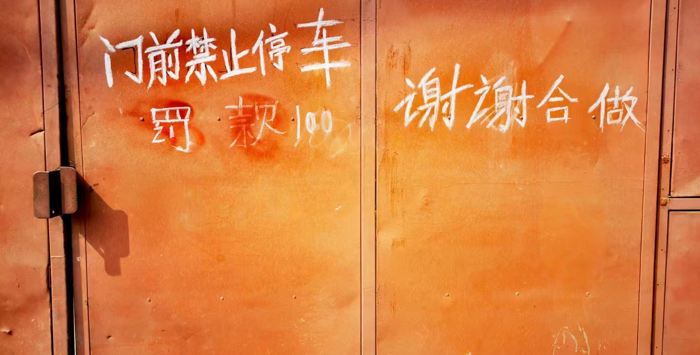 门前禁止停车
罚款100
谢谢合做